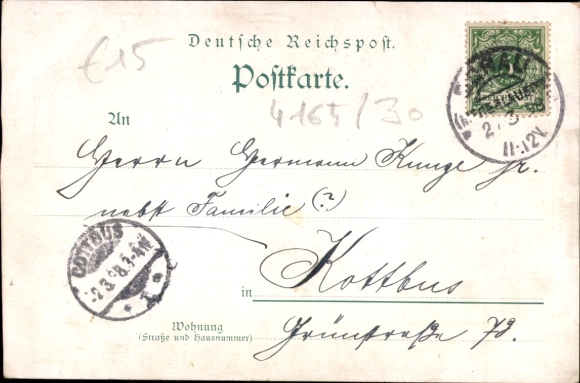 Deutsche Reichspost.
€15
Postkarte.
4165/30
An
Herrn Hermann Kunze jr.
nebst Familie (?)
COTTBUS
in Kottbus
Wohnung
(Straße und Hausnummer)
Grünstraße 78.
11-12V.